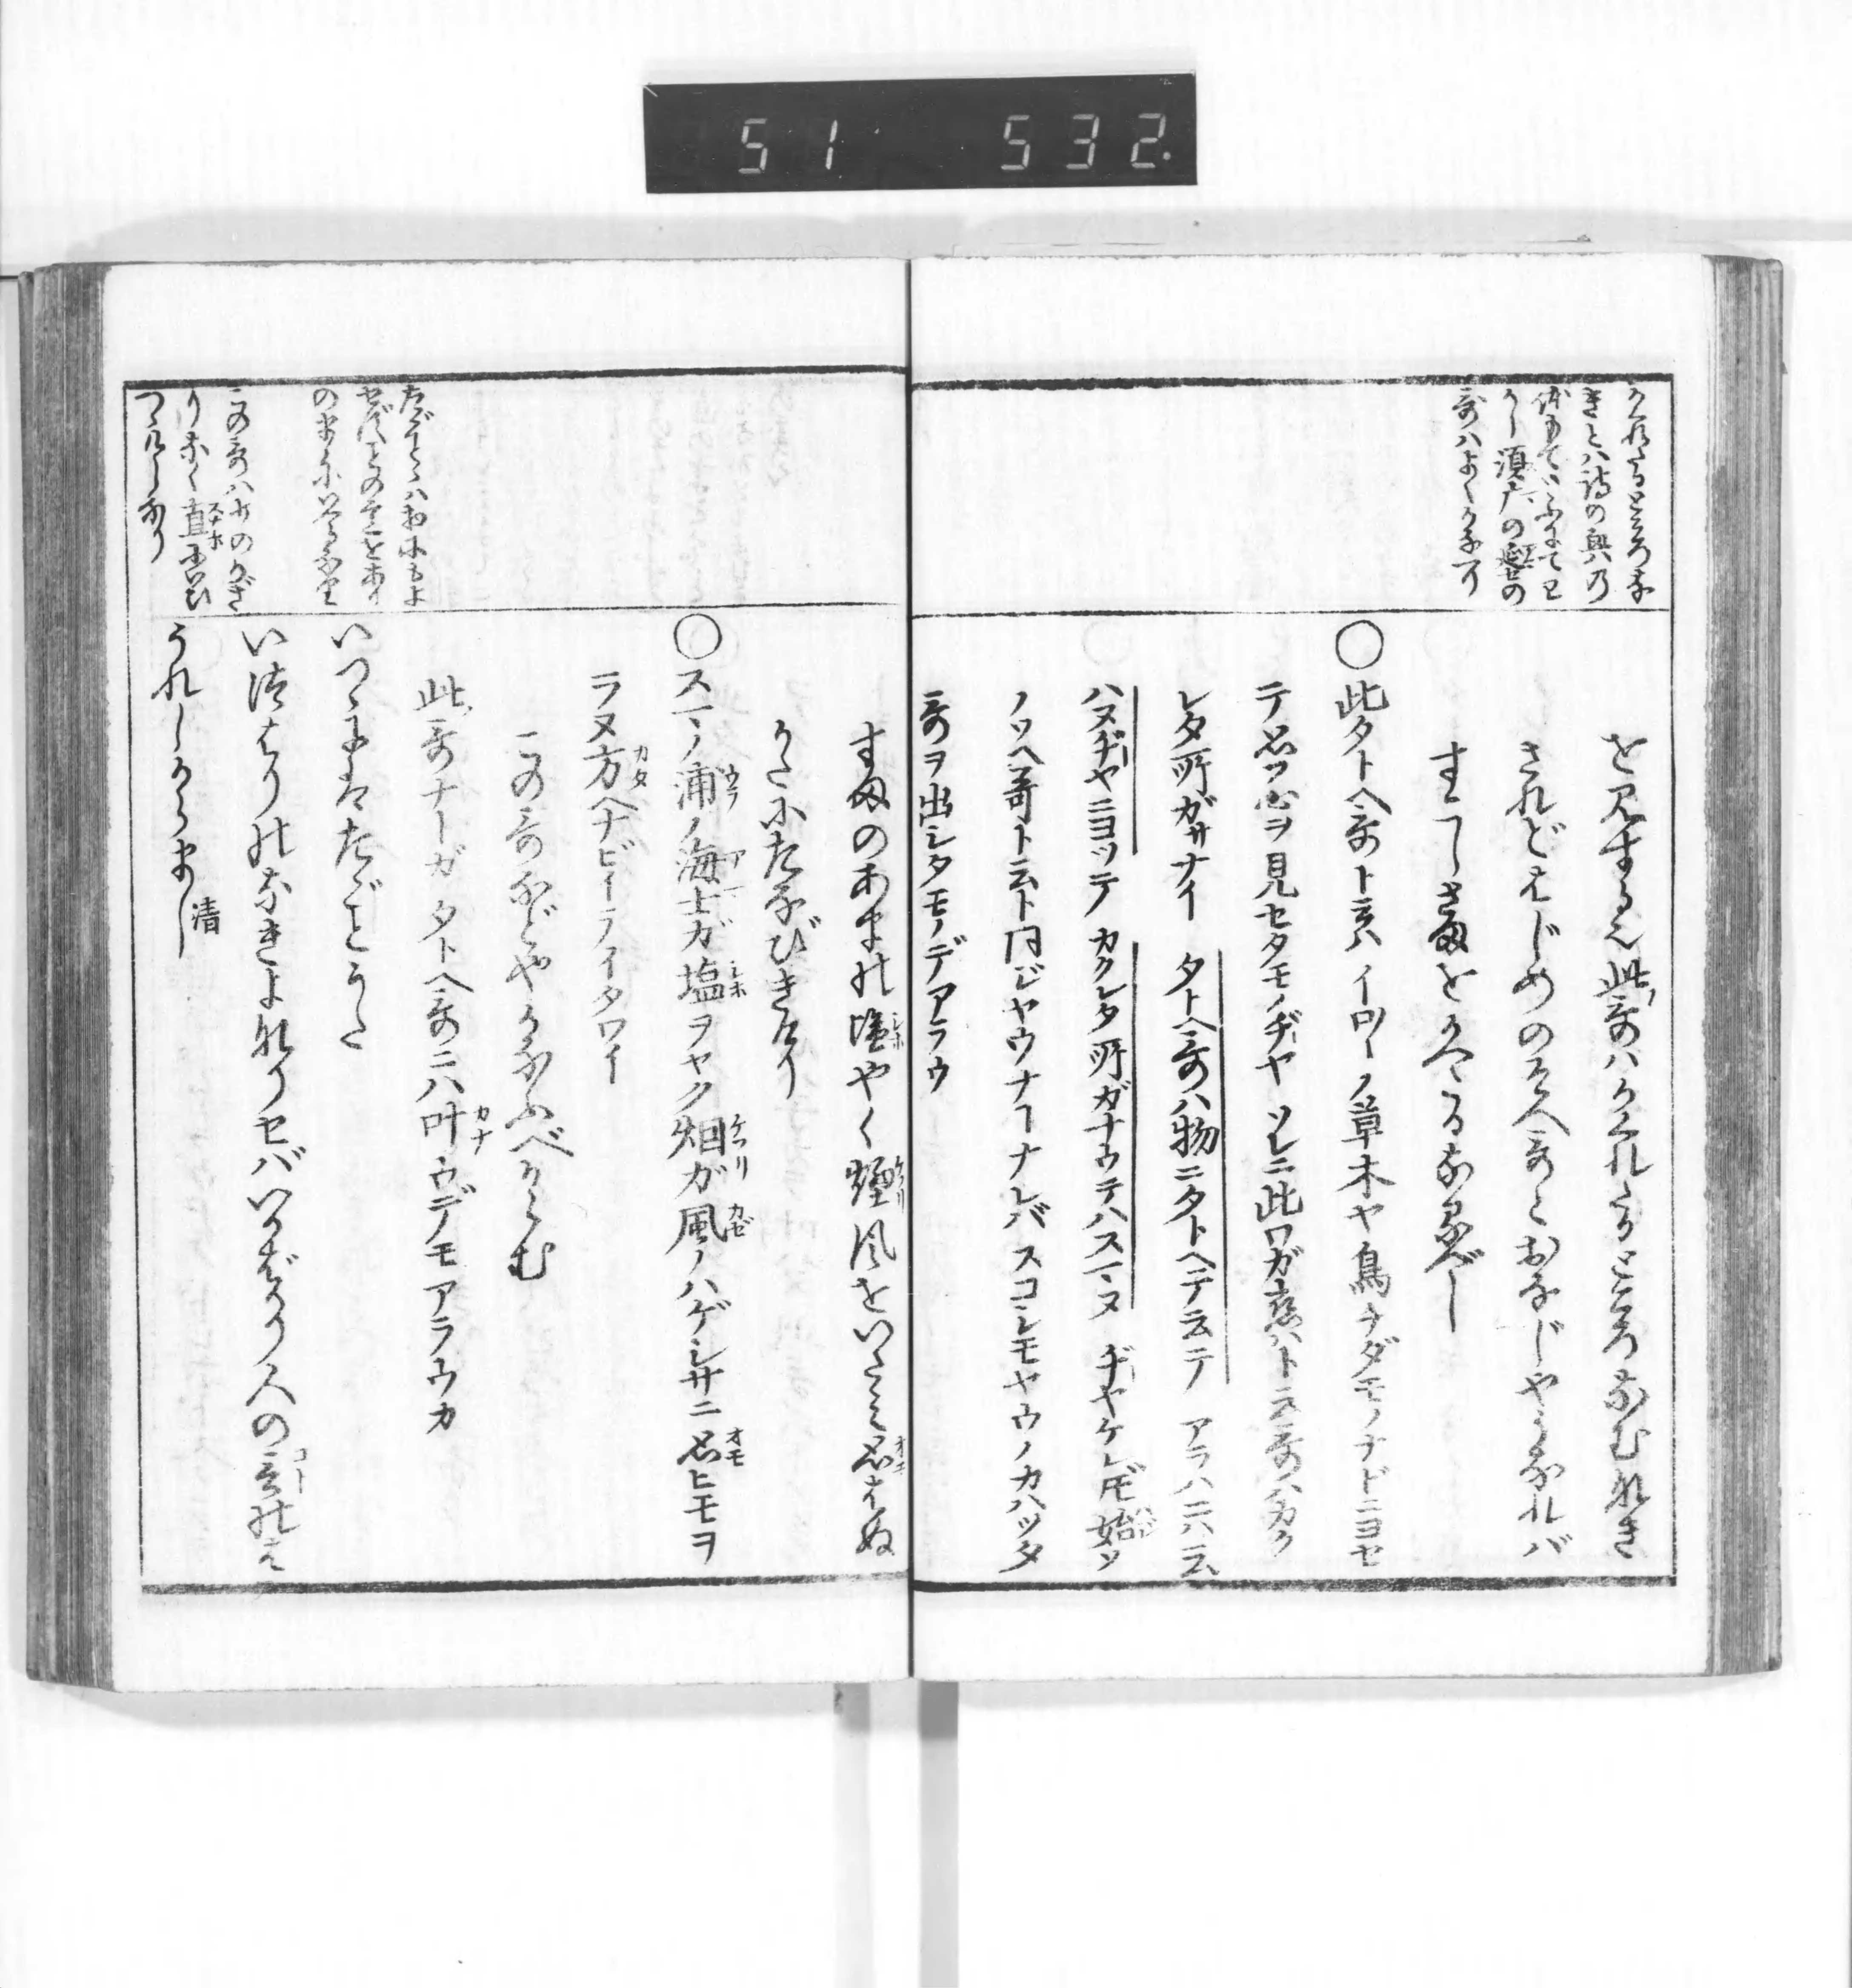 51 532
かくれたるところな
きとハ詩の興の
哥ハよくかなへり
を見する也此哥ハかくれたるところなむなき
されどはじめのそへ哥とおなじやうなれバ
すこしさまをかへたるなるべし
○此タトヘ哥ト云ハイロ〳〵ノ草木ヤ鳥ケダモノナドニヨセ
テ思フ心ヲ見セタモノヂヤ ソレニ此ワガ恋ハト云哥ハカク
レタ所ガサナイ タトヘ哥ハ物ニタトヘテ云テ アラハニハ云
ハヌヂヤニヨツテ カクレタ所ガナウテハスマヌ ヂヤケレ𪜈始ノ
ソヘ哥ト云ト同ジヤウナヿナレバ スコシモヤウノカハツタ
哥ヲ出シタモノデアラウ
たゞことハ物にもよ
せずたゞのことをあり
のまゝにいへるなり
この哥ハ
りなく直にいひ
すまのあまの塩やく煙風をいたミ思はぬ
かたにたなびきけり
○スマノ浦ノ海士ガ塩ヲヤク烟ガ風ノハゲシサニ思ヒモヨ
ラヌ方ヘナビイテイタワイ
この哥などやかなふべからむ
此哥ナドガタトヘ哥ニハ叶ウデモアラウカ
いつゝにはたゞことうた
いつはりのなきよなりせバいかばかり人の言のは
うれしからまし清